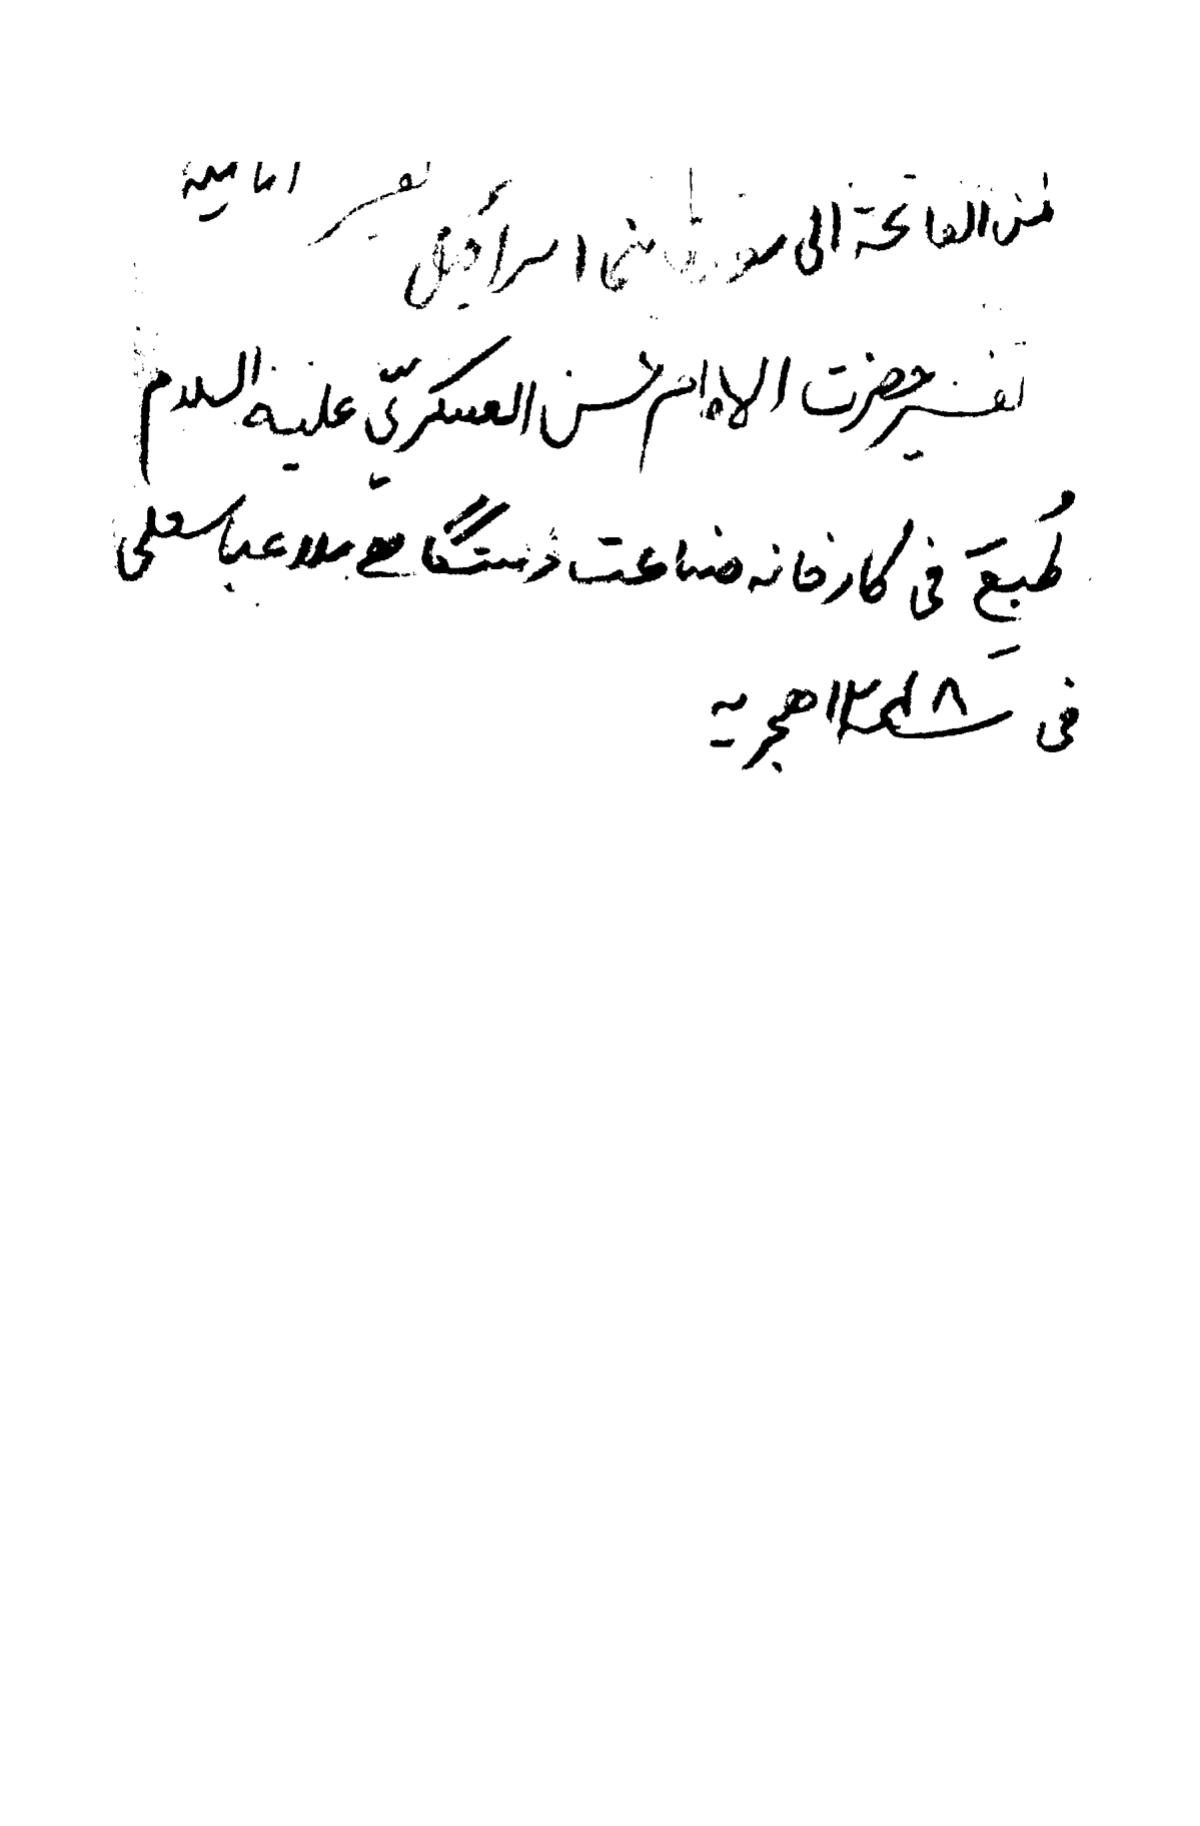 تفسير اماميه
من الفاتحة الى سورة بنى اسرائيل
تفسير حضرت الامام حسن العسكريّ عليه السلام
طُبِعَ فى كارخانه صناعت دستگاهے ملا عباسعلى
في سنة ١٢٦٨ هجريه